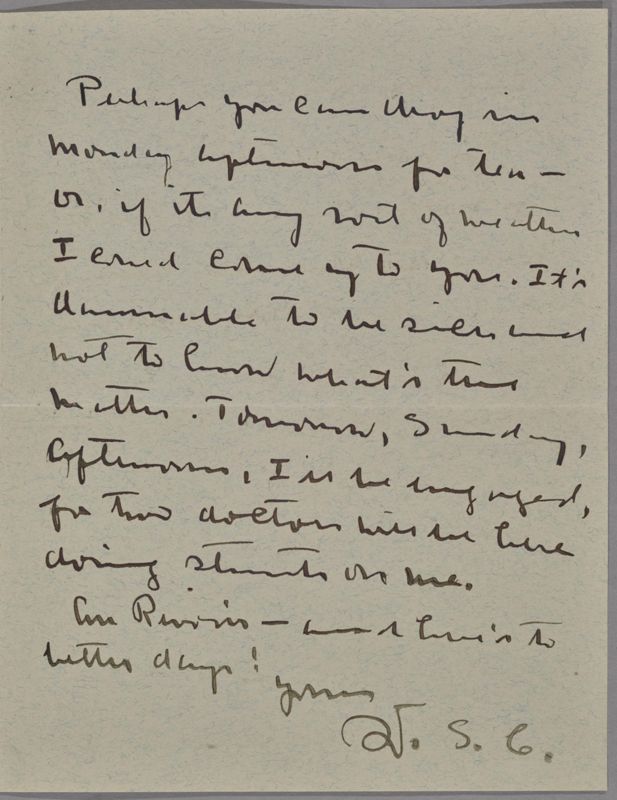 Perhaps you can drop in
Monday afternoon for tea —
or, if it's any sort of weather
I could come up to you. It's
damnable to be sick and
not to know what's the
matter. Tomorrow, Sunday,
afternoon, I'll be engaged,
for two doctors will be here
doing stunts on me.
Au Revoir — and here's to
better days!
yours
W. S. C.